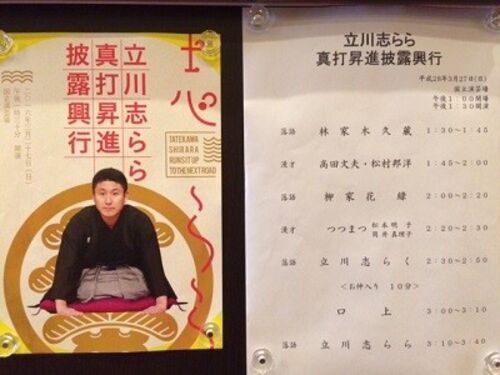 立川志らら
真打昇進
披露興行
二〇一六年三月二十七日(日)
午後一時三十分 開演
国立演芸場
TATEKAWA
SHIRARA
RUNS IT UP
TO THE NEXT ROAD
立川志らら
真打昇進披露興行
平成28年3月27日(日)
国立演芸場
午後1:00開場
午後1:30開演
落語 林家木久蔵 1:30~1:45
漫才 高田文夫・松村邦洋 1:45~2:00
落語 柳家花緑 2:00~2:20
漫才 つつまつ 松本明子 筒井真理子 2:20~2:30
落語 立川志らく 2:30~2:50
<お仲入り 10分>
口上 3:00~3:10
落語 立川志らら 3:10~3:40